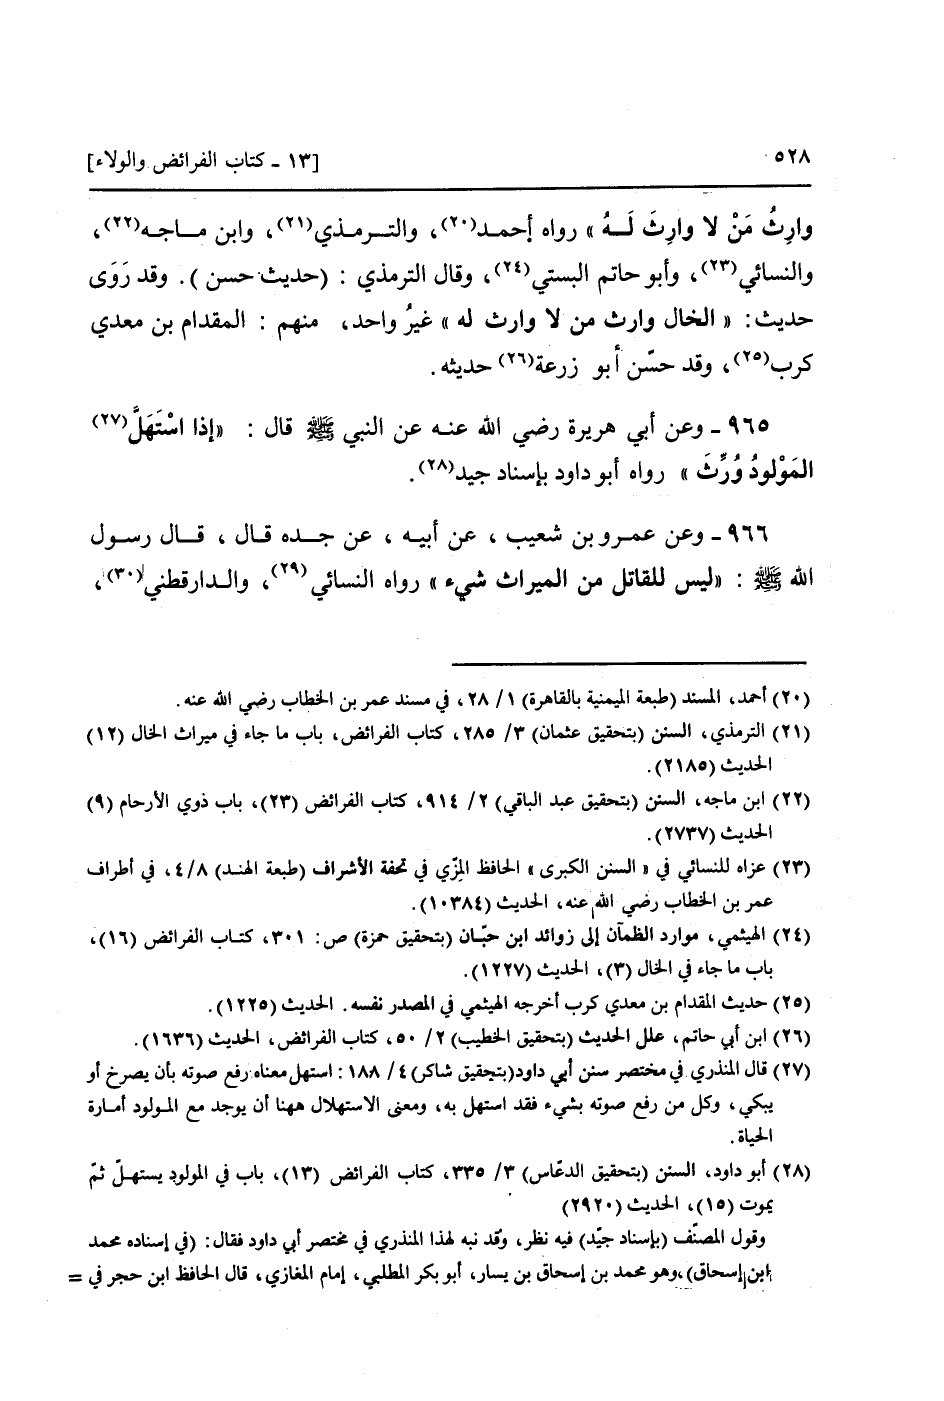 ٥٢٨ [١٣ ـ كتاب الفرائض والولاء]
وارِثُ مَنْ لا وارِثَ لَـهُ » رواه أحمـد(٢٠)، والتـرمـذي(٢١)، وابن مـاجـه(٢٢)،
والنسائي(٢٣)، وأبو حاتم البستي(٢٤)، وقال الترمذي : (حديث حسن ). وقد رَوَى
حديث: « الخال وارث من لا وارث له » غيرُ واحد، منهم : المقدام بن معدي
كرب(٢٥)، وقد حسّن أبو زرعة(٢٦) حديثه .
٩٦٥ ـ وعن أبي هريرة رضي الله عنـه عن النبي ﷺ قال : «إذا اسْتَهَلَّ(٢٧)
المَوْلودُ وُرِّثَ » رواه أبو داود بإسناد جيد(٢٨).
٩٦٦ ـ وعن عمـرو بن شعيب ، عن أبيـه ، عن جـده قـال ، قـال رسول
الله ﷺ : «ليس للقاتل من الميراث شيء » رواه النسائي(٢٩)، والـدارقطني(٣٠)،
(٢٠) أحمد، المسند (طبعة الميمنية بالقاهرة) ١/ ٢٨، في مسند عمر بن الخطاب رضي الله عنه.
(٢١) الترمذي، السنن (بتحقيق عثمان) ٣/ ٢٨٥، كتاب الفرائض، باب ما جاء في ميراث الخال (١٢)
الحديث (٢١٨٥).
(٢٢) ابن ماجه، السنن (بتحقيق عبد الباقي) ٢/ ٩١٤، كتاب الفرائض (٢٣)، باب ذوي الأرحام (٩)
الحديث (٢٧٣٧).
(٢٣) عزاه للنسائي في « السنن الكبرى » الحافظ المِزّي في تحفة الأشراف (طبعة الهند) ٤/٨، في أطراف
عمر بن الخطاب رضي الله عنه، الحديث (١٠٣٨٤).
(٢٤) الهيثمي، موارد الظمآن إلى زوائد ابن حبّـان (بتحقيق حمزة) ص: ٣٠١، كتـاب الفرائض (١٦)،
باب ما جاء في الخال (٣)، الحديث (١٢٢٧).
(٢٥) حديث المقدام بن معدي كرب أخرجه الهيثمي في المصدر نفسه. الحديث (١٢٢٥).
(٢٦) ابن أبي حاتم، علل الحديث (بتحقيق الخطيب) ٢/ ٥٠، كتاب الفرائض، الحديث (١٦٣٦).
(٢٧) قال المنذري في مختصر سنن أبي داود(بتحقيق شاكر) ٤/ ١٨٨ : استهل معناه رفع صوته بأن يصرخ أو
يبكي، وكل من رفع صوته بشيء فقد استهل به، ومعنى الاستهلال ههنا أن يوجد مع المـولود أمـارة
الحياة .
(٢٨) أبو داود، السنن (بتحقيق الدعّاس) ٣/ ٣٣٥، كتاب الفرائض (١٣)، باب في المولود يستهلّ ثمّ
يموت (١٥)، الحديث (٢٩٢٠)
وقول المصنّف (بإسناد جيّد) فيه نظر، وقد نبه لهذا المنذري في مختصر أبي داود فقال: (في إسناده محمد
ابن إسحاق)، وهو محمد بن إسحاق بن يسار، أبو بكر المطلبي، إمام المغازي، قال الحافظ ابن حجر في =